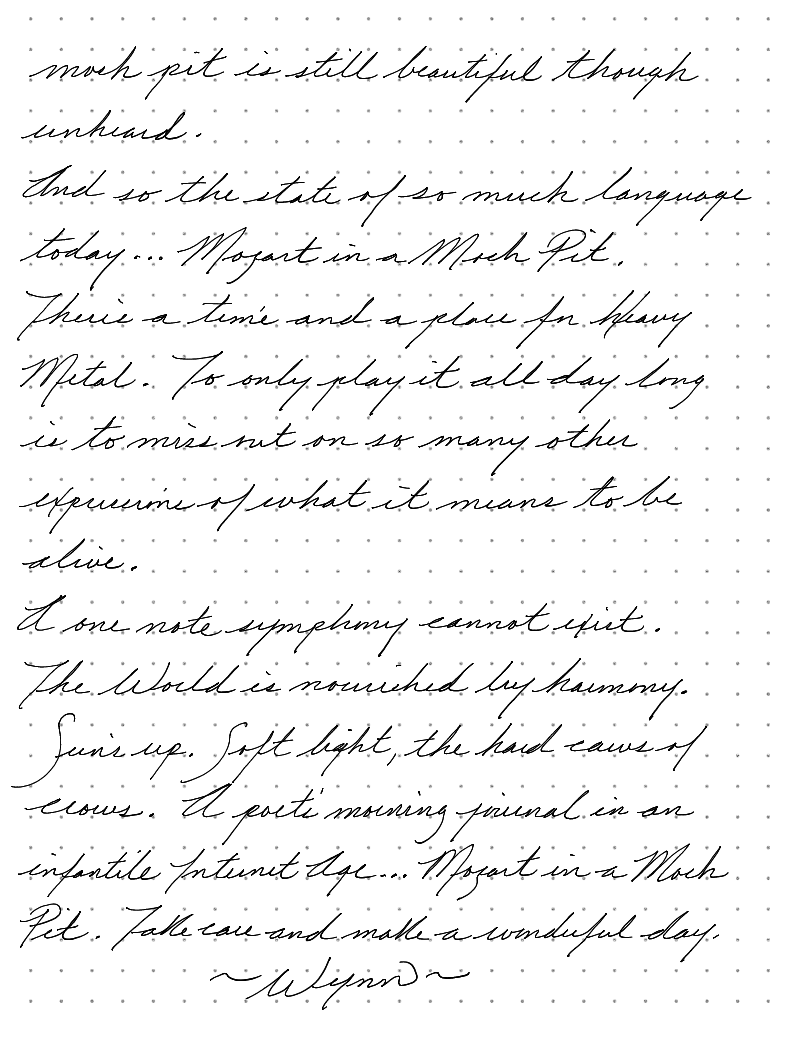 mosh pit is still beautiful though
unheard.
And so the state of so much language
today... Mozart in a Mosh Pit.
There's a time and a place for Heavy
Metal. To only play it all day long
is to miss out on so many other
experience of what it means to be
alive.
A one note symphony cannot exist.
The World is nourished by harmony.
Sun's up. Soft light, the hard caws of
crows. A poet's morning journal in an
infantile Internet Age... Mozart in a Mosh
Pit. Take care and make a wonderful day.
~Wynn~